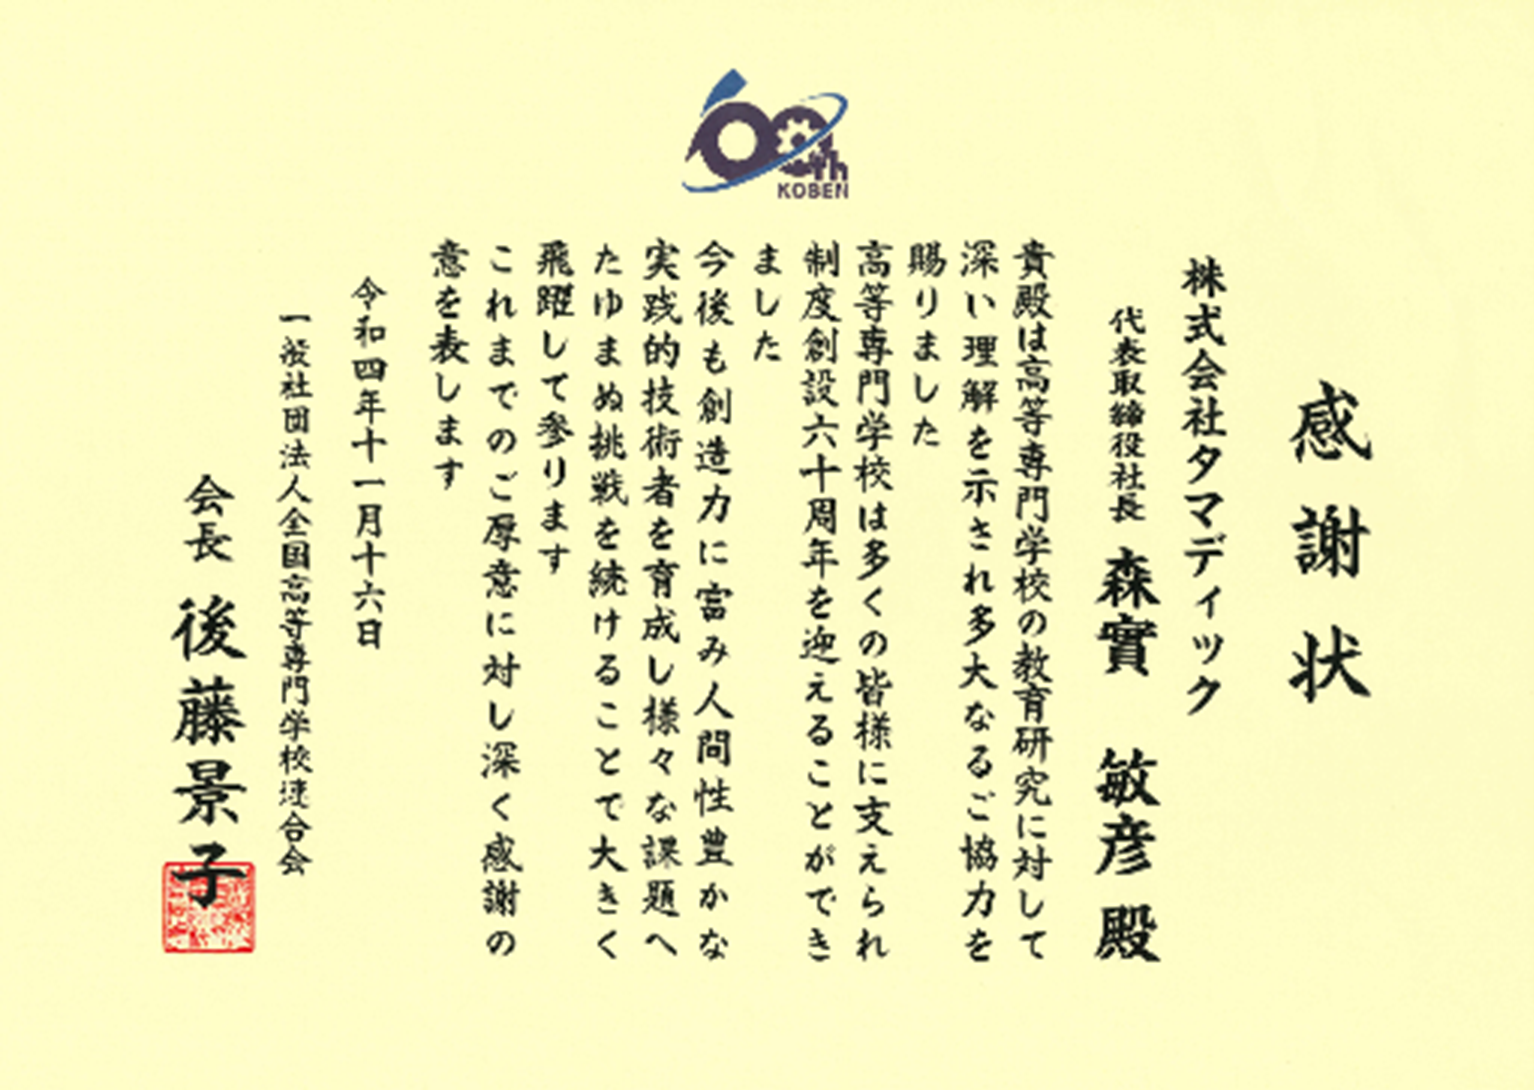 60th
KOBEN
感謝状
株式会社タマディック
代表取締役社長 森實 敏彦 殿
貴殿は高等専門学校の教育研究に対して
深い理解を示され多大なるご協力を
賜りました
高等専門学校は多くの皆様に支えられ
制度創設六十周年を迎えることができ
ました
今後も創造力に富み人間性豊かな
実践的技術者を育成し様々な課題へ
たゆまぬ挑戦を続けることで大きく
飛躍して参ります
これまでのご厚意に対し深く感謝の
意を表します
令和四年十一月十六日
一般社団法人全国高等専門学校連合会
会長 後藤景子